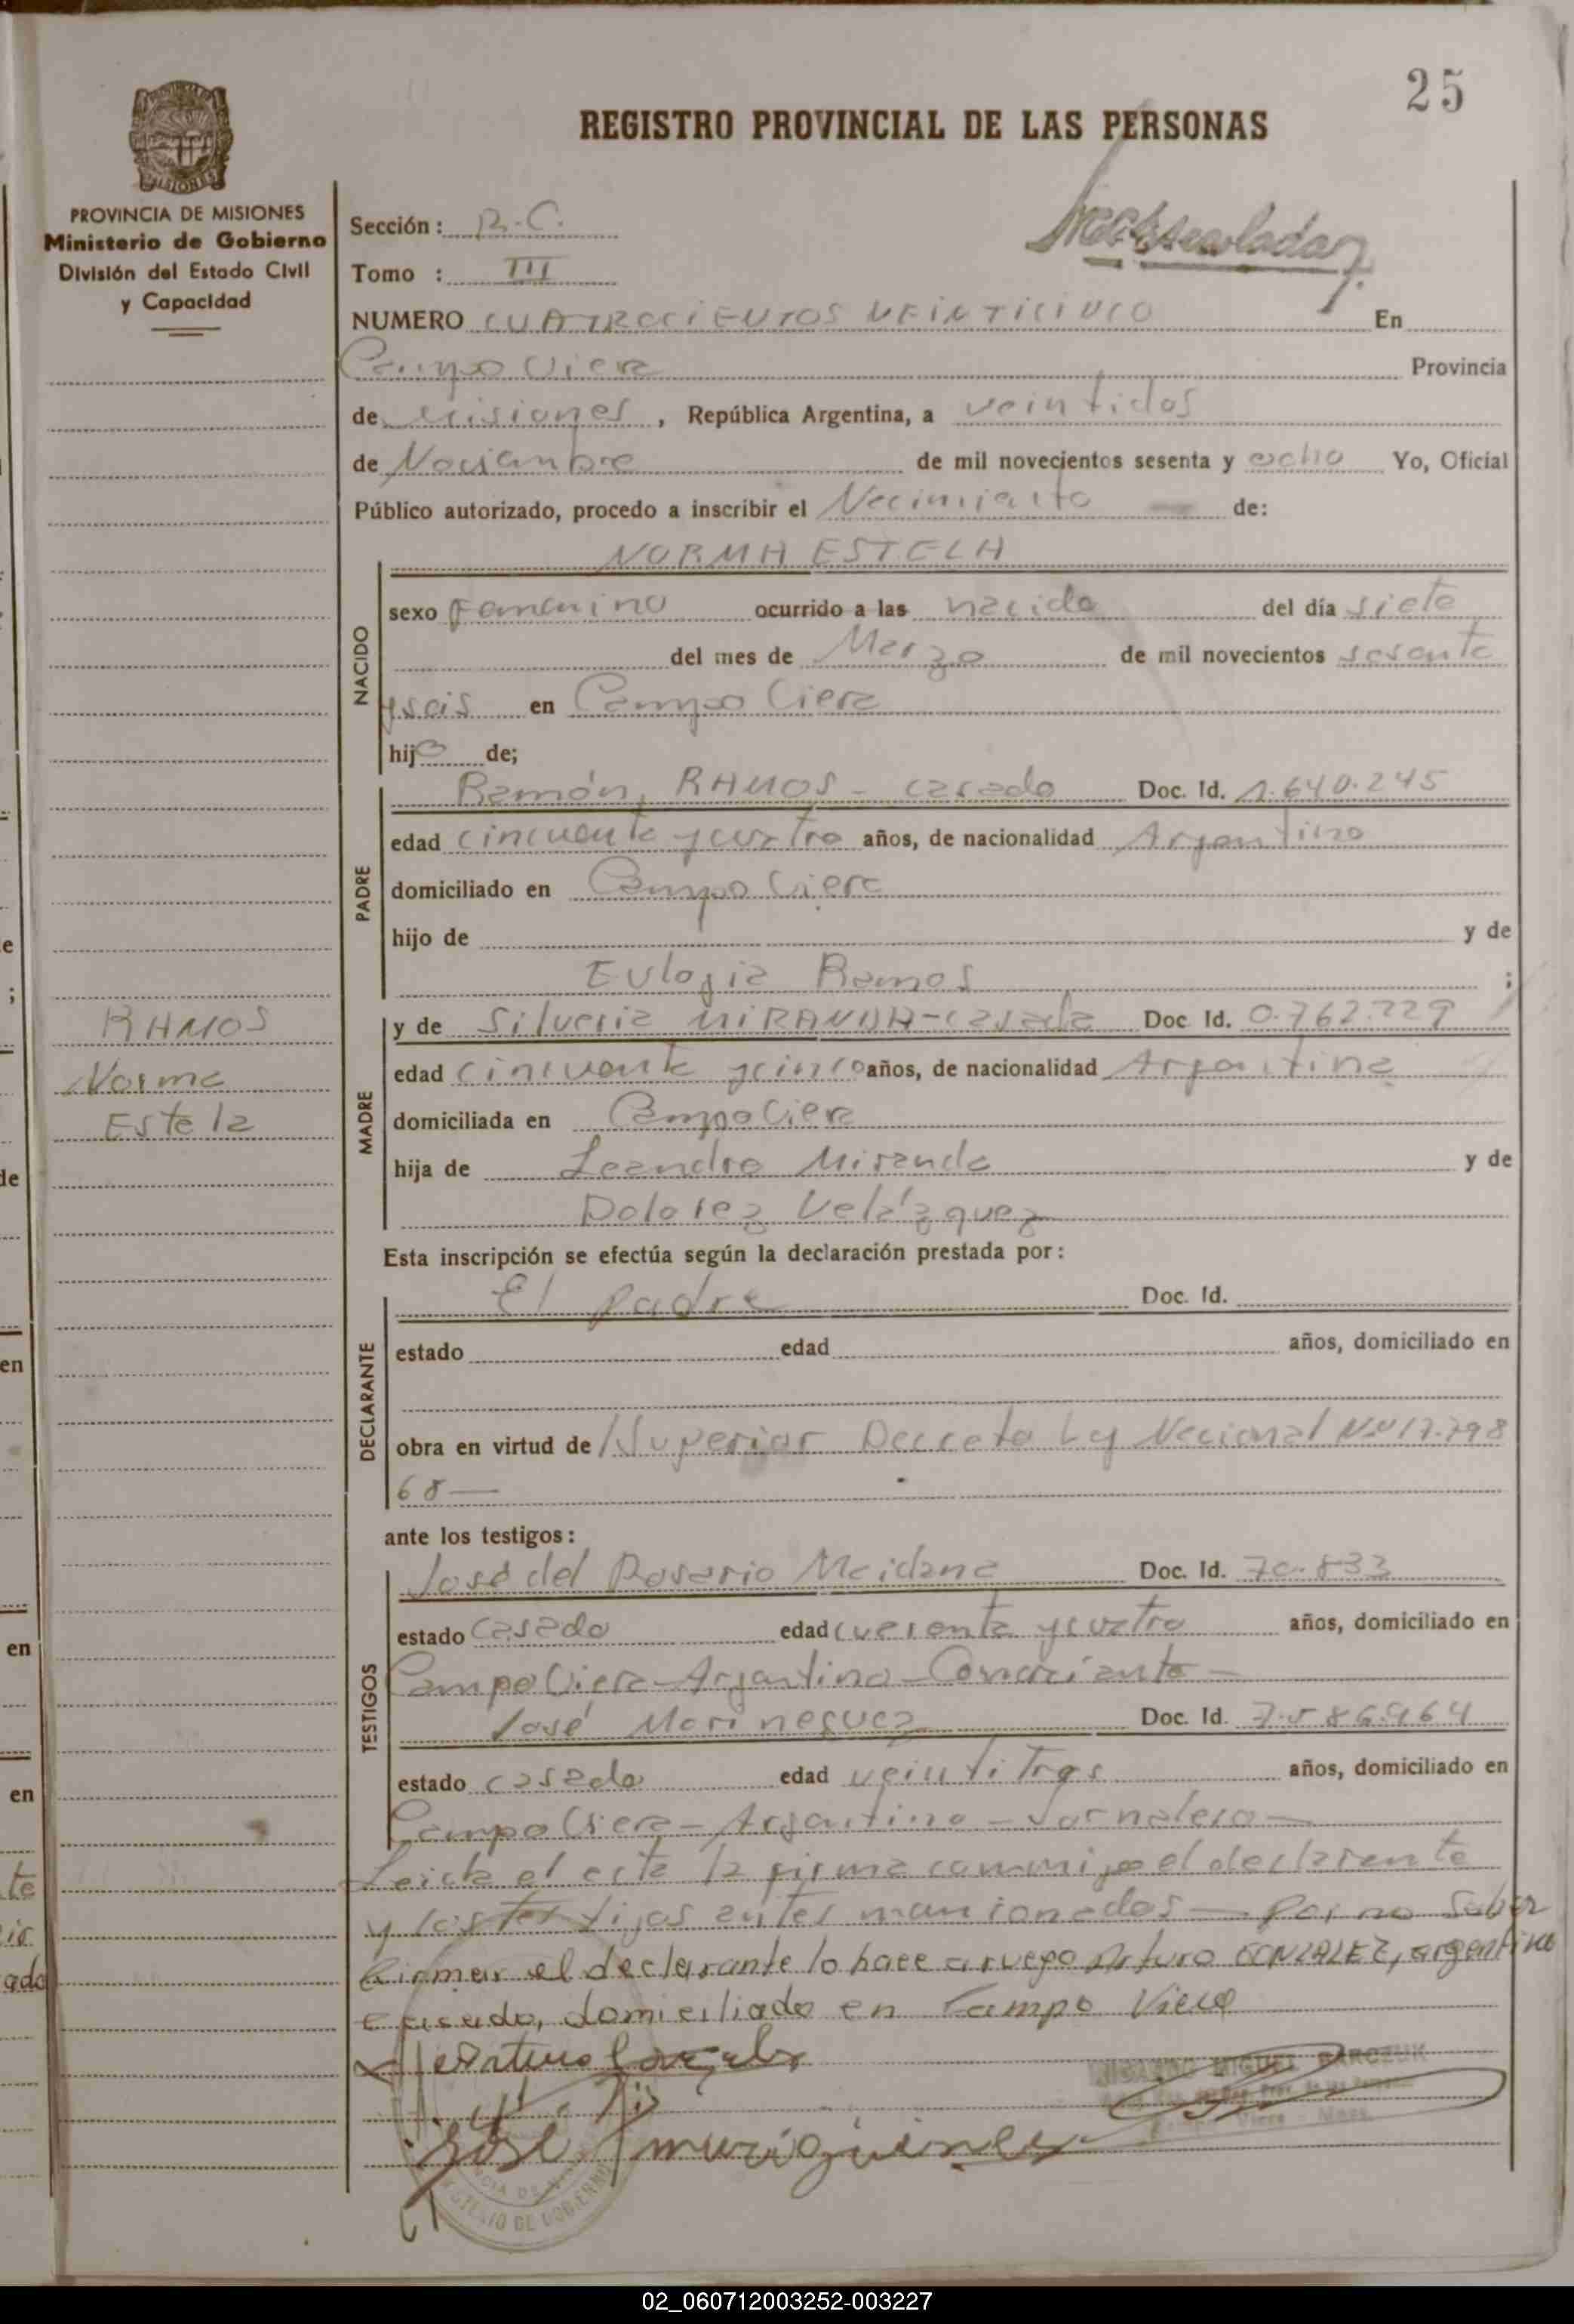 25
REGISTRO PROVINCIAL DE LAS PERSONAS
PROVINCIA DE MISIONES
Ministerio de Gobierno
División del Estado Civil
y Capacidad
Sección: R.C.
Tomo : III
NUMERO CUATROCIENTOS VEINTICINCO En
Campo Viera Provincia
de Misiones, República Argentina, a veintidos
de Noviembre de mil novecientos sesenta y ocho Yo, Oficial
Público autorizado, procedo a inscribir el Nacimiento de:
NORMA ESTELA
NACIDO
sexo Femenino ocurrido a las nacida del día siete
del mes de Marzo de mil novecientos sesenta
y seis en Campo Viera
hija de;
PADRE
Ramón, RAMOS - casado Doc. Id. 1.640.245
edad cincuenta y cuatro años, de nacionalidad Argentino
domiciliado en Campo Viera
hijo de y de
Eulogia Ramos ;
RAMOS
Norma
Estela
MADRE
y de Silveria MIRANDA - casada Doc Id. 0.762.229
edad cincuenta y cinco años, de nacionalidad Argentina
domiciliada en Campo Viera
hija de Leandro Miranda y de
Dolorez Velázquez
Esta inscripción se efectúa según la declaración prestada por:
DECLARANTE
El padre Doc. Id.
estado edad años, domiciliado en
obra en virtud de Superior Decreto Ley Nacional Nº 17.798
68 —
ante los testigos:
TESTIGOS
José del Rosario Meidana Doc. Id. 70.833
estado casado edad cuarenta y cuatro años, domiciliado en
Campo Viera - Argentino - Comerciante -
José Marineguez Doc. Id. 7.586.964
estado casado edad veintitres años, domiciliado en
Campo Viera - Argentino - Jornalero -
Leida el acta la firma conmigo el declarante
y los testigos antes mencionados — por no saber
firmar el declarante lo hace a ruego Arturo GONZALEZ, argentino
casado, domiciliado en Campo Viera
Arturo Gonzalez
MIGUEL
José
02_060712003252-003227